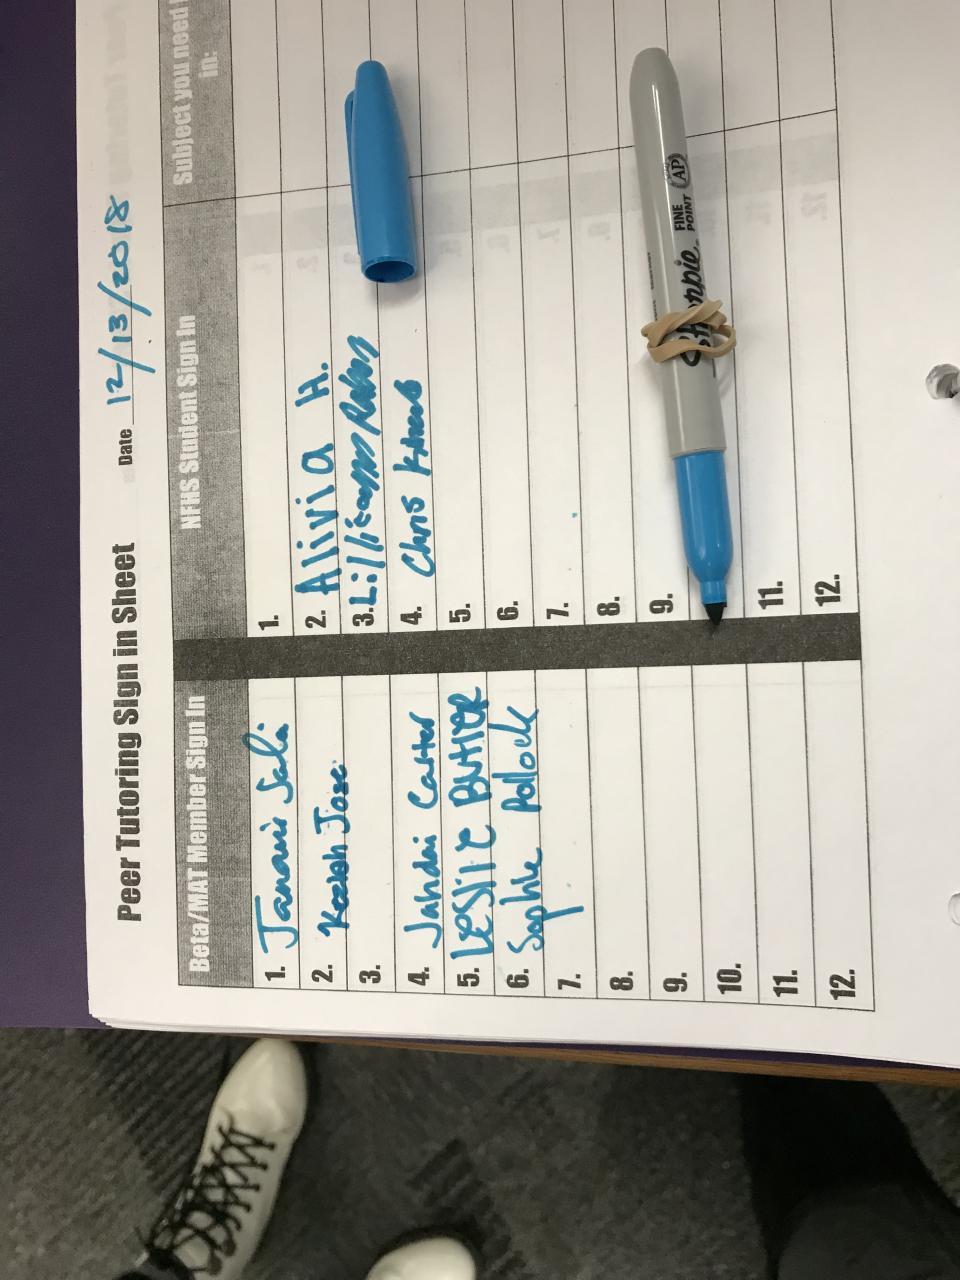 Peer Tutoring Sign in Sheet Date 12/13/2018
Beta/MAT Member Sign In
NFHS Student Sign In
Subject you need
in:
1. Sali
2. Keziah Jose
3.
4. Jahdai Carter
5. LESlIE BUtlER
6. Sophie Pollock
7.
8.
9.
10.
11.
12.
1.
2. Alivia H.
3.
4. Chris
5.
6.
7.
8.
9.
11.
12.
Sharpie
FINE
POINT
AP